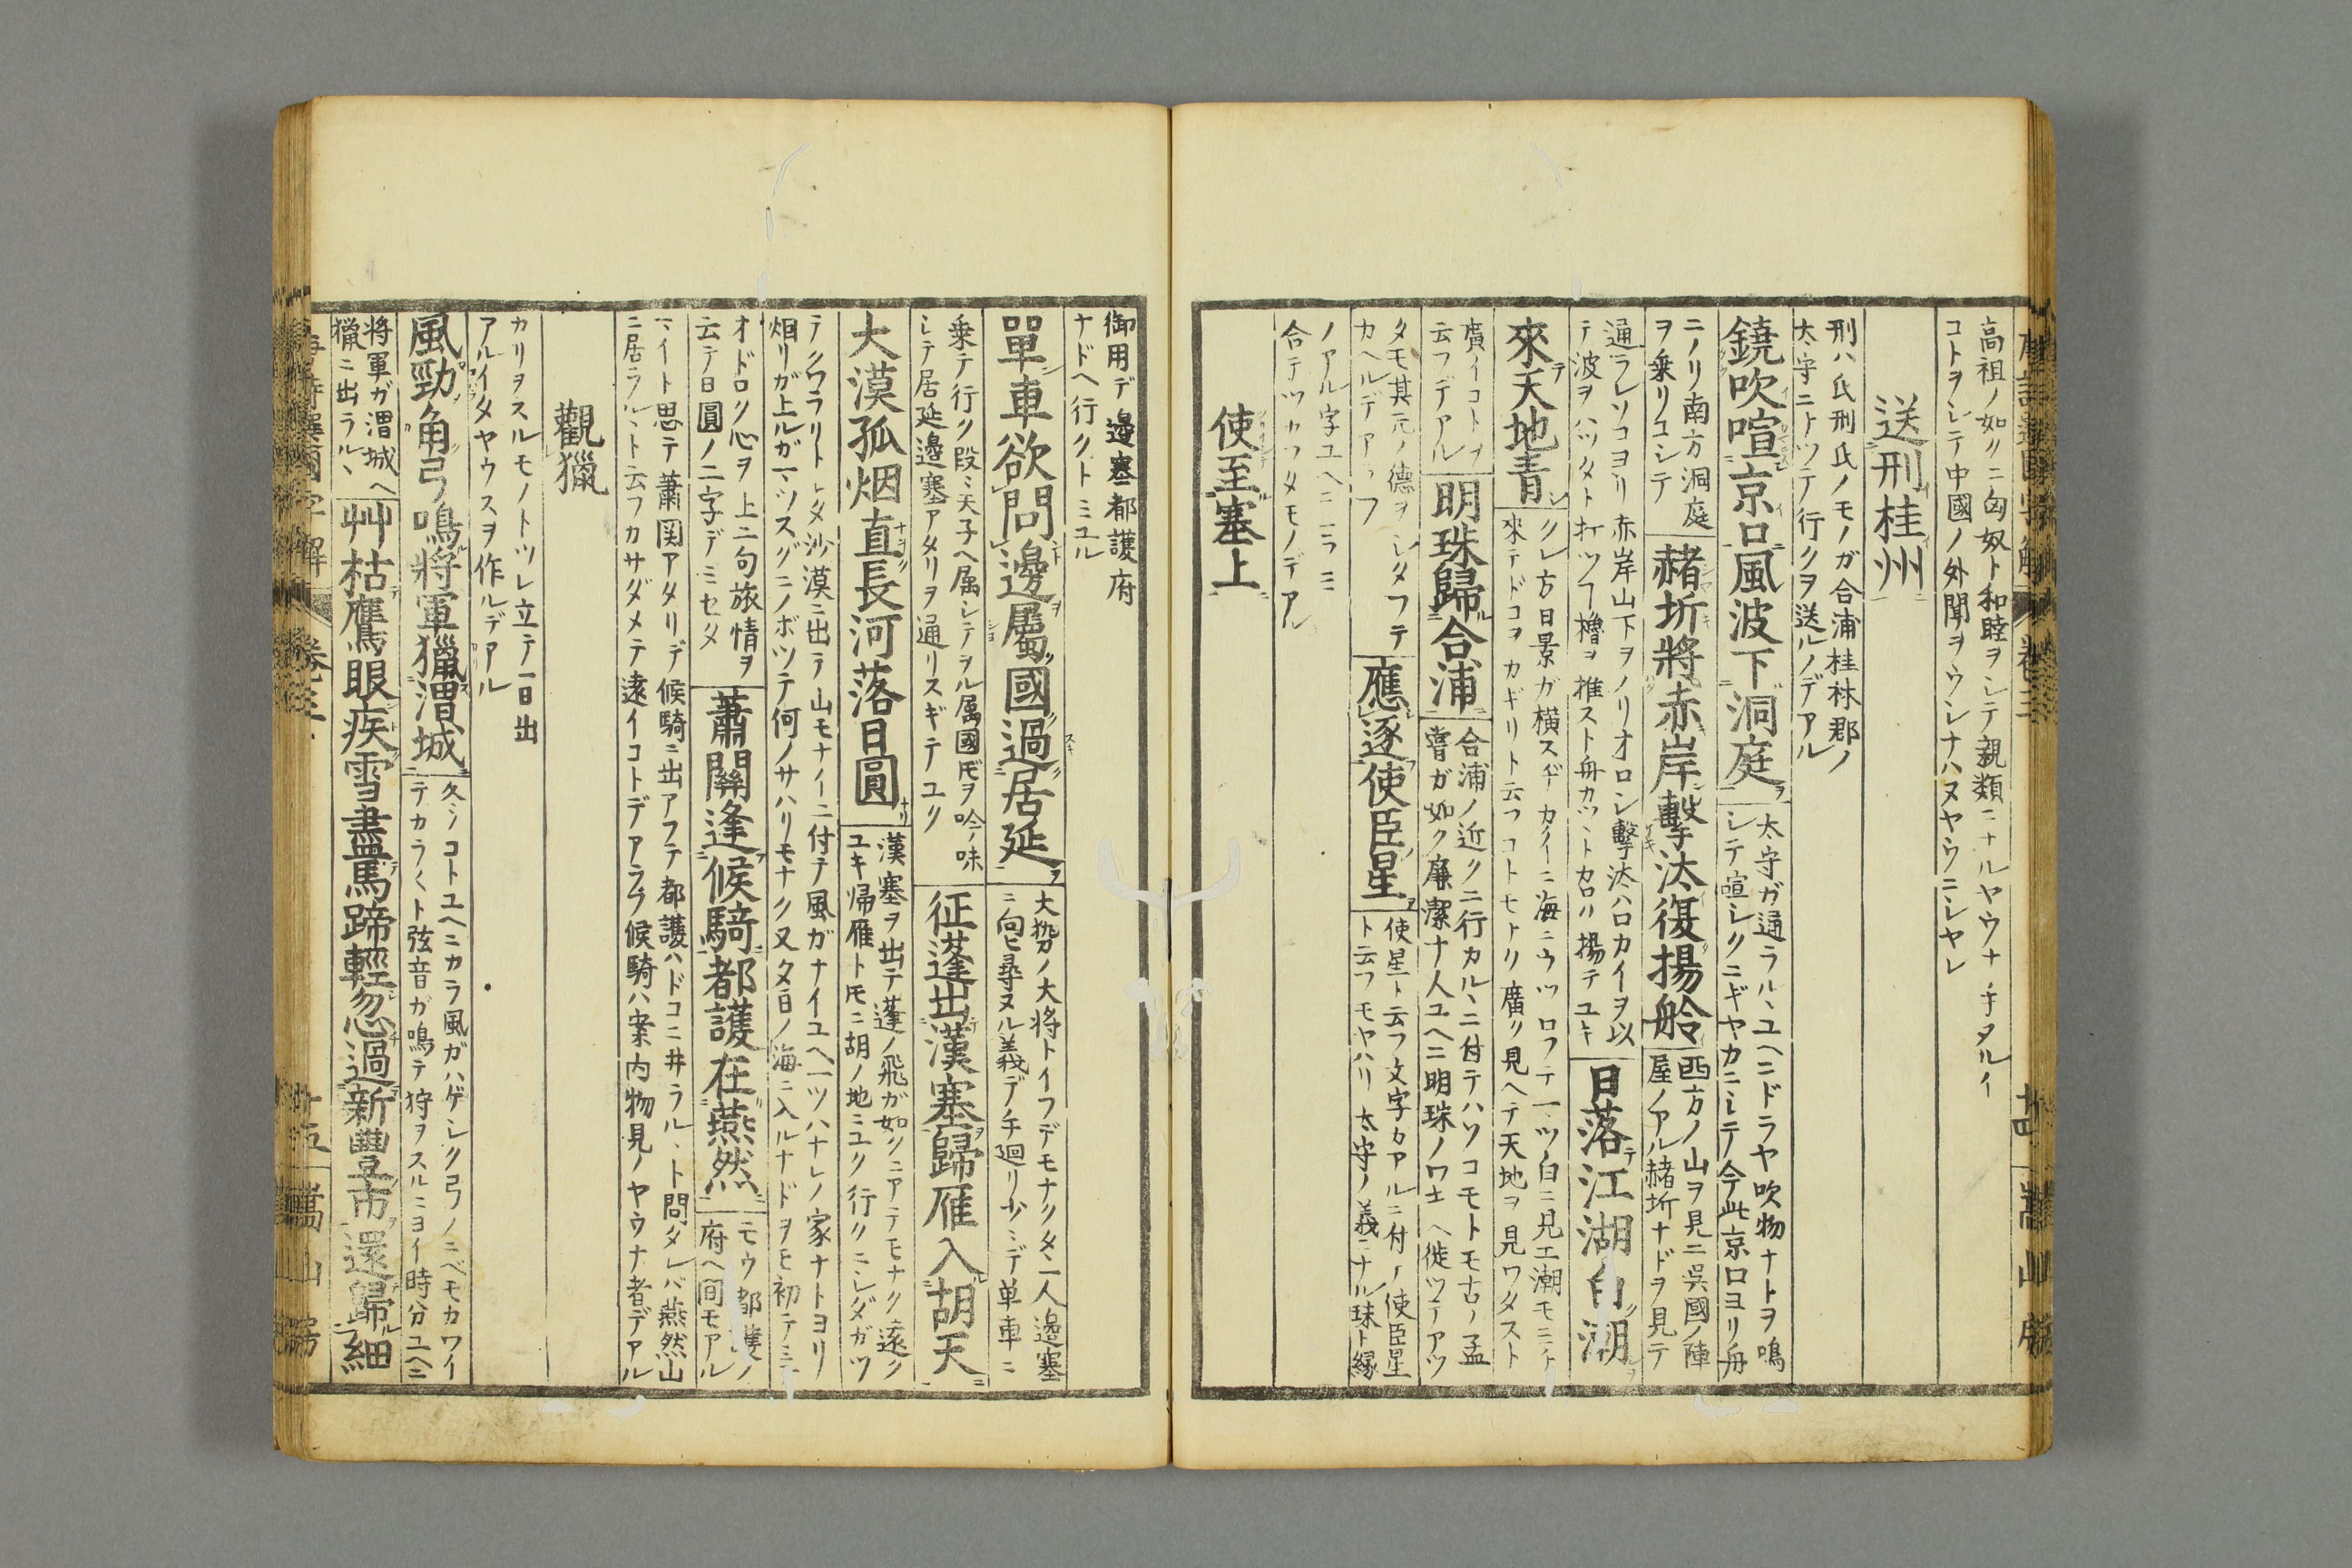 高祖ノ如クニ匈奴ト和睦ヲシテ親類ニナルヤウナ手ヌルイ
コトヲシテ中國ノ外聞ヲウシナハヌヤウニシヤレ
送刑桂州
刑ハ氏刑氏ノモノガ合浦桂林郡ノ
太守ニナツテ行クヲ送ルノデアル
鐃吹喧京口風波下洞庭
太守ガ通ラルヽユヘニドラヤ吹物ナトヲ鳴
シテ喧シクニギヤカニシテ今此京口ヨリ舟
ニノリ南方洞庭
ヲ乗リコシテ
赭圻將赤岸擊汰復揚舲
西方ノ山ヲ見ニ吳國ノ陣
屋ノアル赭圻ナドヲ見テ
通ラレソコヨリ赤岸山下ヲノリオロシ擊汰ハロカイヲ以
テ波ヲハツタト打ツフ櫓ヲ推スト舟カツヽトカロク揚テユキ
日落江湖白潮
來天地青
クレ方日景ガ横スヂカイニ海ニウツロフテ一ツ白ニ見エ潮モニケ
來テドコヲカギリト云フコトモナク廣ク見ヘテ天地ヲ見ワタスト
廣イコトヲ
云フデアル
明珠歸合浦
合浦ノ近クニ行カルヽニ付テハソコモトモ古ノ孟
嘗ガ如ク廉潔ナ人ユヘニ明珠ノワ士ヘ徙ツテアツ
タモ其元ノ德ヲシタフテ
カヘルデアラフ
應逐使臣星
使星ト云フ文字カアルニ付ノ使臣星
ト云フモヤハリ太守ノ義ニナル珠ト縁
ノアル字ユヘニニラミ
合テツカフタモノデアル
使至塞上
御用デ邊塞都護府
ナドヘ行クトミユル
單車欲問邊屬國過居延
大勢ノ大将トイフデモナクタ一人邊塞
ニ向ヒ尋ヌル義デチ廻リ少ミデ単車ニ
乗テ行ク段ミ天子ヘ属シテヲル属國𪜈ヲ吟ノ味
シテ居延邊塞アタリヲ通リスギテユク
征蓬出漢塞歸雁入胡天
漢塞ヲ出テ蓬ノ飛ガ如クニアテモナク遠ク
ユキ帰雁ト𪜈ニ胡ノ地ミユク行クニシダガツ
大漠孤烟直長河落日圓
テクワラリトシタ沙漠ニ出テ山モナイニ付テ風ガナイユヘ一ツハナレノ家ナトヨリ
烟リガ上ルガマツスグニノボツテ何ノサハリモナク又夕日ノ海ニ入ルナドヲモ初テミテ
オドロク心ヲ上ニ句旅情ヲ
云テ日圓ノ二字デミセタ
蕭關逢候騎都護在燕然
モウ都護ノ
府ヘ間モアル
マイト思テ蕭関アタリデ候騎ニ出アフテ都護ハドコニ井ラルヽト問タレバ燕然山
ニ居ラルヽト云フカサダメテ遠イコトデアラフ候騎ハ案内物見ノヤウナ者デアル
觀獵
カリヲスルモノトツレ立テ一日出
アルイタヤウスヲ作ルデアル
風勁角弓鳴將軍獵渭城
久シノコトユヘニカラ風ガハゲシク弓ノニベモカワイ
テカラ〱ト弦音ガ鳴テ狩ヲスルニヨイ時分ユヘニ
將軍ガ渭城ヘ
獵ニ出ラルヽ
艸枯鷹眼疾雪盡馬蹄輕忽過新豐市還歸細
唐詩選國字解
卷三
十五
嵩山房